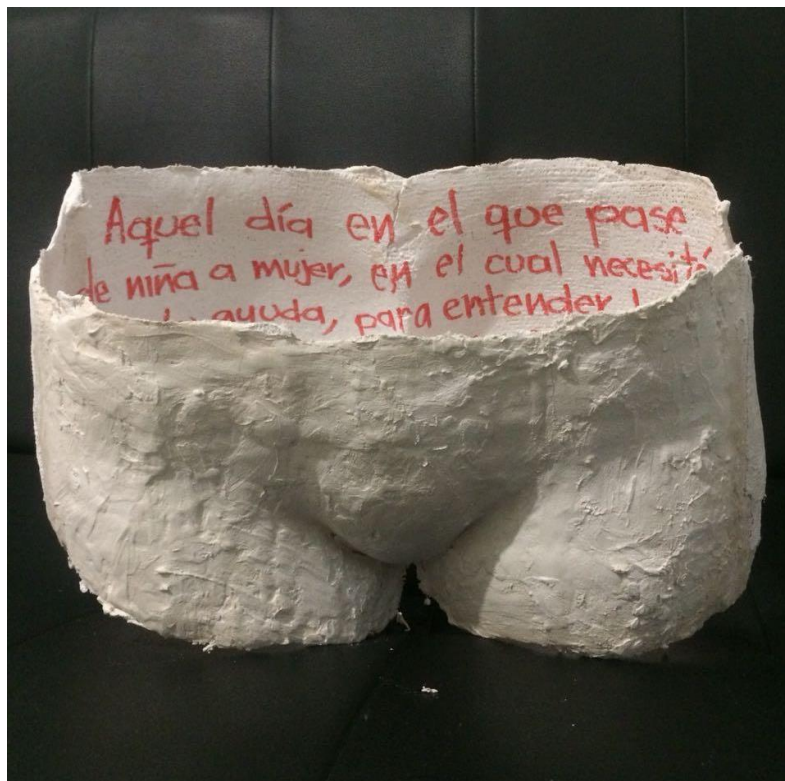 Aquel día en el que pase
de niña a mujer, en el cual necesité
ayuda, para entender